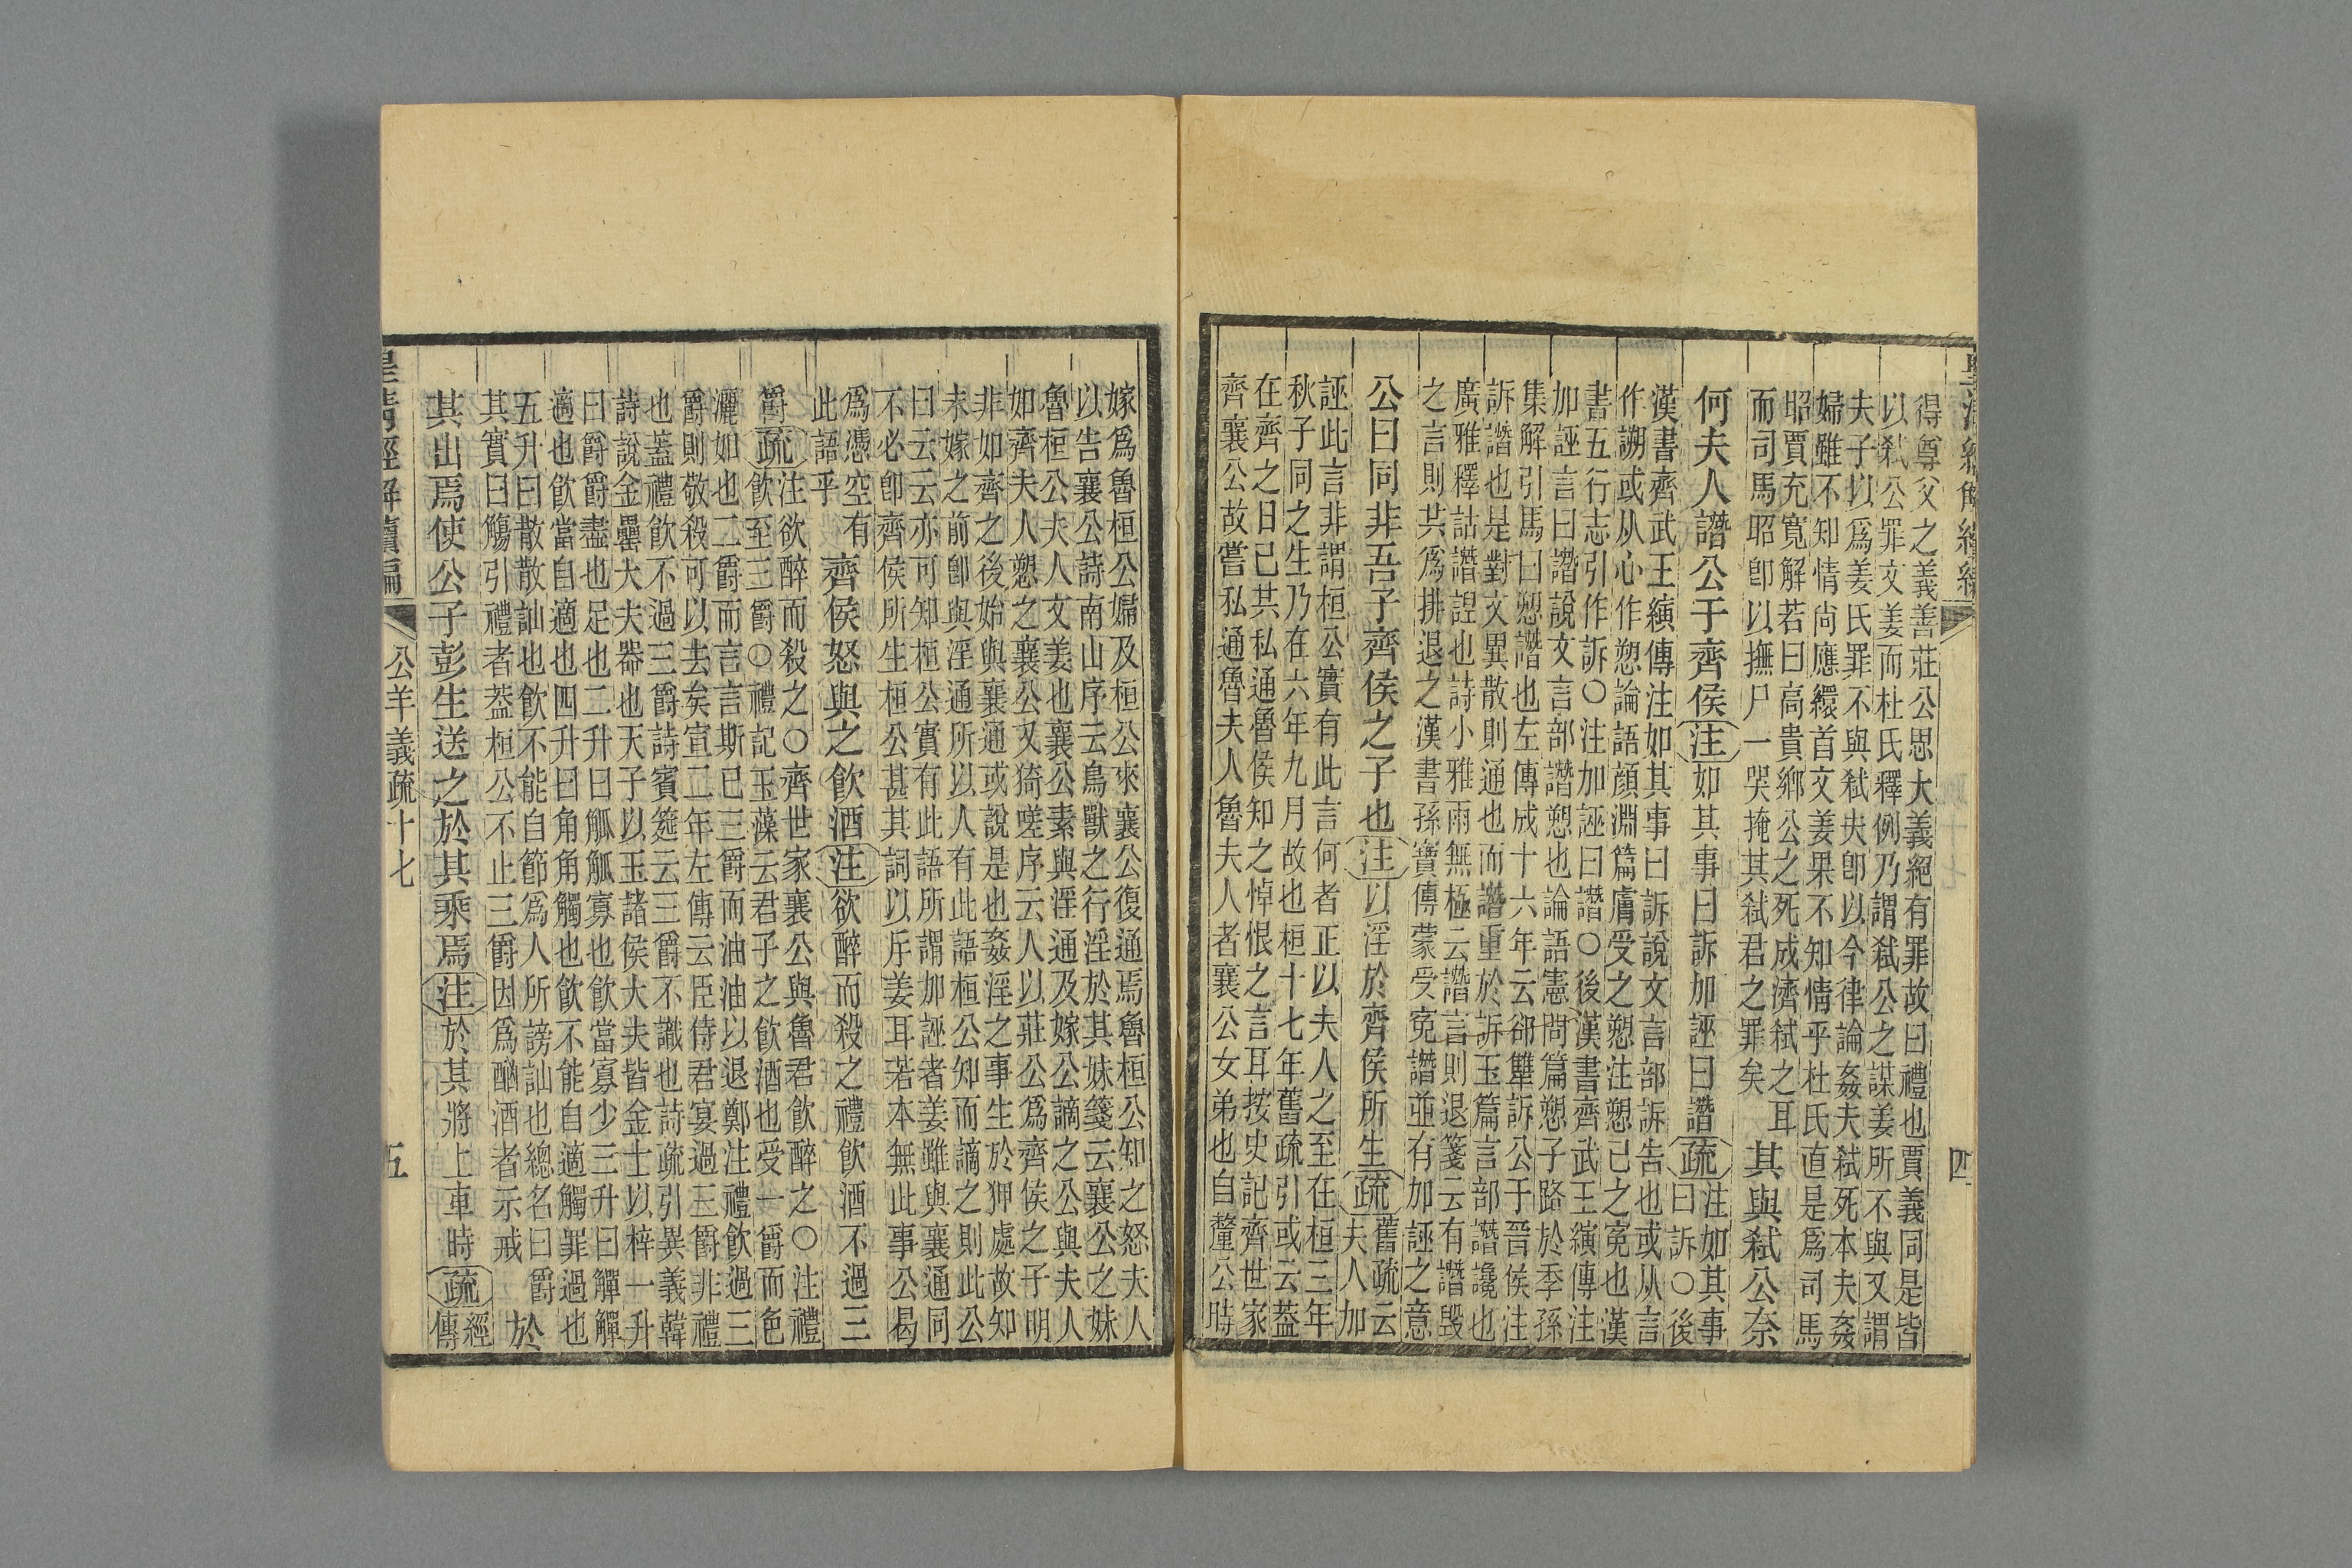 皇清經解續編
四
得尊父之義善莊公思大義絕有罪故曰禮也賈義同是皆
以弒公罪文姜而杜氏釋例乃謂弒公之謀姜所不與又謂
夫子以爲姜氏罪不與弒夫卽以今律論姦夫弒死本夫姦
婦雖不知情尙應繯首文姜果不知情乎杜氏直是爲司馬
昭賈充寬解若曰高貴鄉公之死成濟弒之耳
而司馬昭卽以撫尸一哭掩其弒君之罪矣
其與弒公奈
何夫人譖公于齊侯注如其事曰訴加誣曰譖疏
注如其事
曰訴○後
漢書齊武王縯傳注如其事曰訴說文言部訴告也或从言
作謝或从心作愬論語顏淵篇膚受之愬注愬己之冤也漢
書五行志引作訴○注加誣曰譖○後漢書齊武王縯傳注
加誣言曰譖說文言部譖愬也論語憲問篇愬子路於季孫
集解引馬曰愬譖也左傳成十六年云郤犨訴公于晉侯注
訴譖也是對文異散則通也而譖重於訴玉篇言部譖讒也
廣雅釋詁譖諻也詩小雅雨無極云譖言則退箋云有譖毀
之言則共爲排退之漢書孫寶傳蒙受冤譖並有加誣之意
公曰同非吾子齊侯之子也注以淫於齊侯所生疏
舊疏云
夫人加
誣此言非謂桓公實有此言何者正以夫人之至在桓三年
秋子同之生乃在六年九月故也桓十七年舊疏引或云蓋
在齊之日已共私通魯侯知之悼恨之言耳按史記齊世家
齊襄公故嘗私通魯夫人魯夫人者襄公女弟也自釐公時
嫁爲魯桓公婦及桓公來襄公復通焉魯桓公知之怒夫人
以告襄公詩南山序云鳥獸之行淫於其妹箋云襄公之妹
魯桓公夫人文姜也襄公素與淫通及嫁公謫之公與夫人
如齊夫人愬之襄公又猗嗟序云人以莊公爲齊侯之子明
非如齊之後始與襄通或說是也姦淫之事生於狎處故知
未嫁之前卽與淫通所以人有此語桓公知而謫之則此公
曰云云亦可知桓公實有此語所謂加誣者姜雖與襄通同
不必卽齊侯所生桓公甚其詞以斥姜耳若本無此事公曷
爲憑空有
此語乎
齊侯怒與之飮酒注欲醉而殺之禮飮酒不過三
爵疏
注欲醉而殺之○齊世家襄公與魯君飮醉之○注禮
飮至三爵○禮記玉藻云君子之飮酒也受一爵而色
灑如也二爵而言言斯已三爵而油油以退鄭注禮飮過三
爵則敬殺可以去矣宣二年左傳云臣侍君宴過三爵非禮
也蓋禮飮不過三爵詩賓筵云三爵不識也詩疏引異義韓
詩說金罍大夫器也天子以玉諸侯大夫皆金士以梓一升
曰爵爵盡也足也二升曰觚觚寡也飮當寡少三升曰觶觶
適也飮當自適也四升曰角角觸也飮不能自適觸罪過也
五升曰散散訕也飮不能自節爲人所謗訕也總名曰爵
其實曰觴引禮者蓋桓公不止三爵因爲酗酒者示戒
於
其出焉使公子彭生送之於其乘焉注於其將上車時疏
經
傳
皇淸經解續編
公羊義疏十七
五